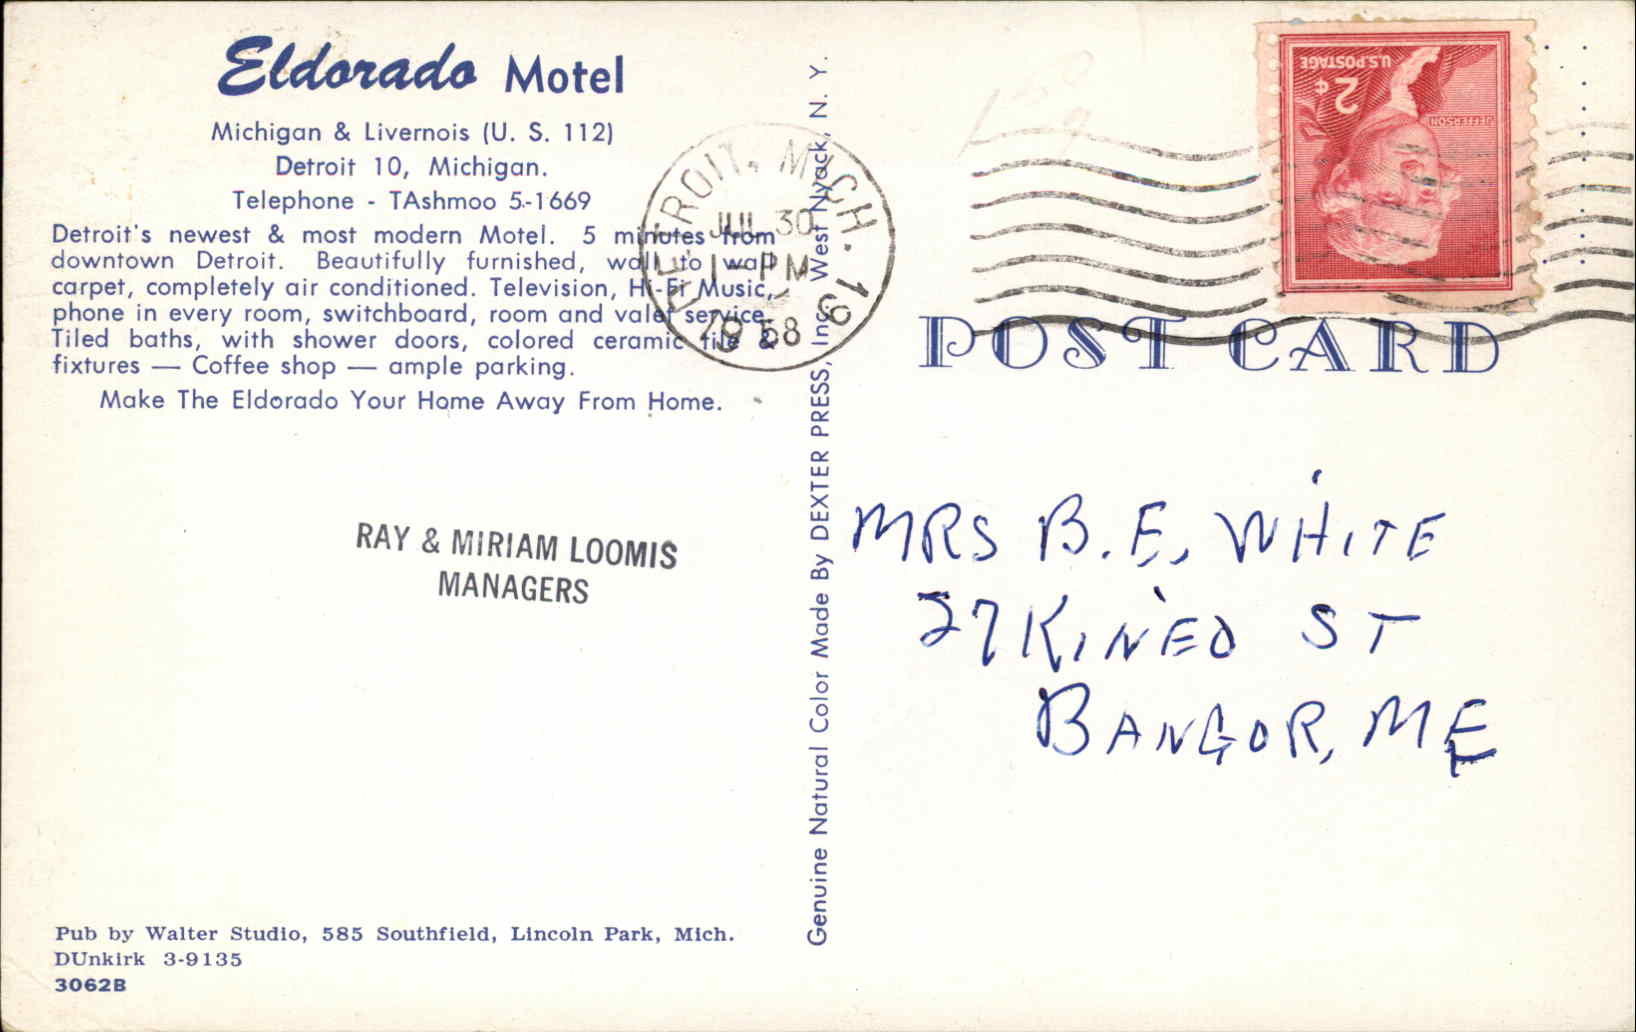 Eldorado Motel
Michigan & Livernois (U. S. 112)
Detroit 10, Michigan.
Telephone - TAshmoo 5-1669
Detroit's newest & most modern Motel. 5 minutes from
downtown Detroit. Beautifully furnished, wall to wall
carpet, completely air conditioned. Television, Hi-Fi Music,
phone in every room, switchboard, room and valet service.
Tiled baths, with shower doors, colored ceramic tile &
fixtures — Coffee shop — ample parking.
Make The Eldorado Your Home Away From Home.
RAY & MIRIAM LOOMIS
MANAGERS
Pub by Walter Studio, 585 Southfield, Lincoln Park, Mich.
DUnkirk 3-9135
3062B
Genuine Natural Color Made By DEXTER PRESS, Inc., West Nyack, N. Y.
DETROIT, MICH. 19
JUL 30
1-PM
1958
U.S. POSTAGE
2¢
JEFFERSON
POST CARD
MRS B. E. WHITE
27 KINEO ST
BANGOR, ME